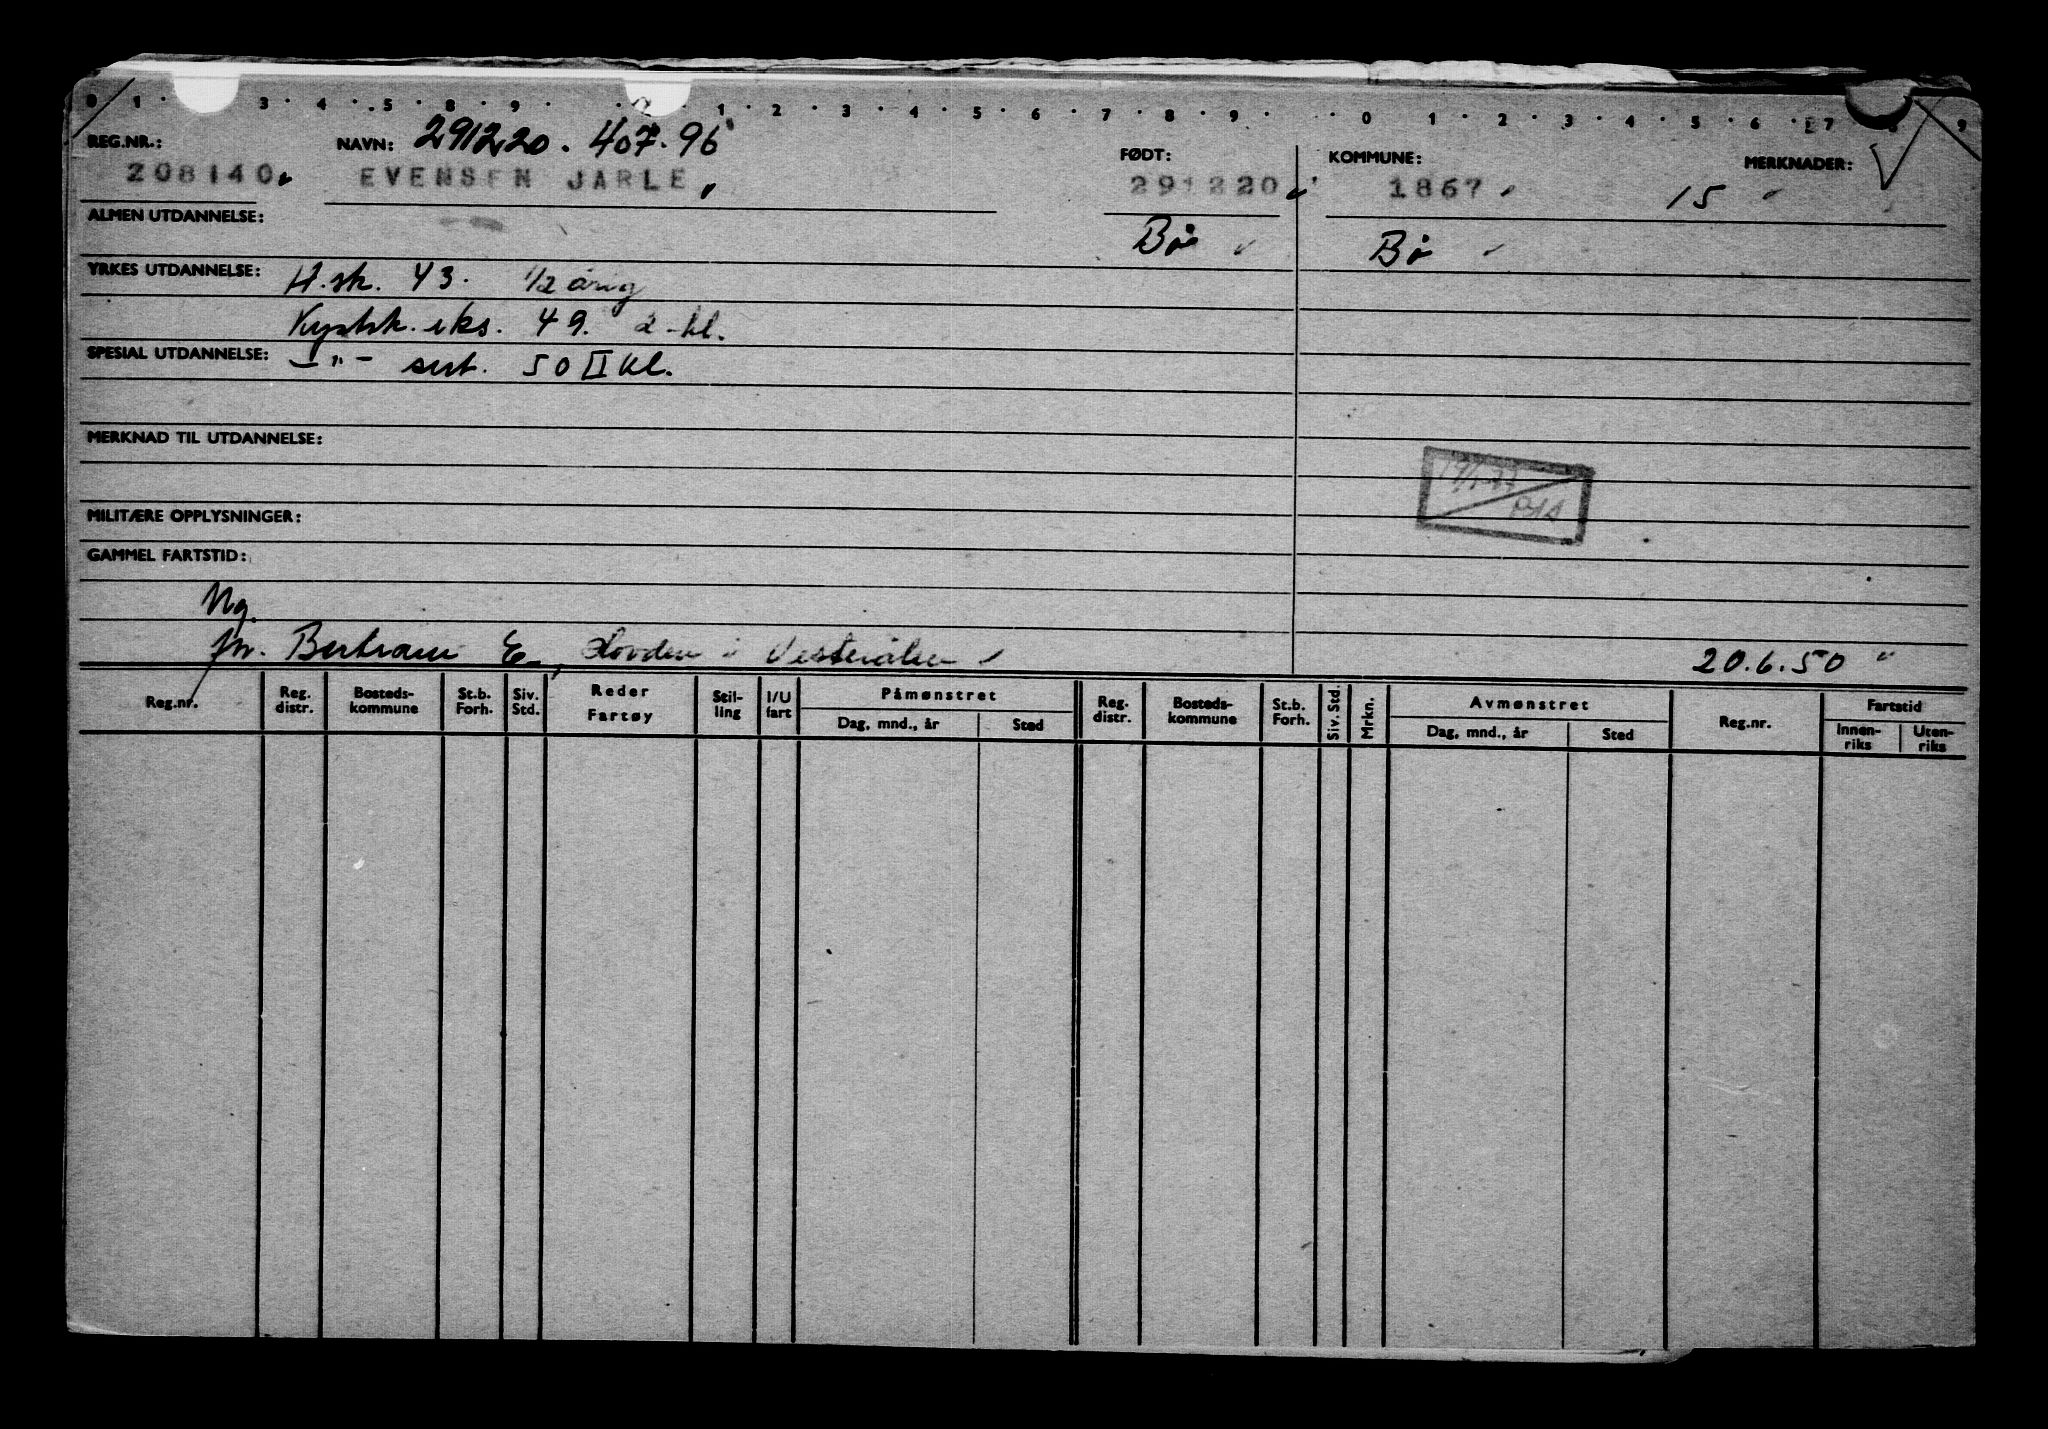 0 1 3 4 5 8 9 1 2 3 4 5 6 7 8 9 0 1 2 3 4 5 6 7 8 9
REG.NR.: NAVN: 291220. 407.96 FØDT: KOMMUNE: MERKNADER:
208140 EVENSEN JARLE 291220 1867 15
ALMEN UTDANNELSE: Bø Bø
YRKES UTDANNELSE: H.sk. 43. 1/2 årig
Kystsk. eks. 49. 2-kl.
SPESIAL UTDANNELSE: -"- sert. 50 II kl.
MERKNAD TIL UTDANNELSE:
MILITÆRE OPPLYSNINGER:
GAMMEL FARTSTID:
Ng.
fm. Bertram E., Hovden i Vesterålen 20.6.50
Reg.nr. Reg. distr. Bosteds-kommune St.b. Forh. Siv. Std. Reder Fartøy Stil-ling I/U fart Påmønstret Dag, mnd., år Sted Reg. distr. Bosteds-kommune St.b. Forh. Siv. Std. Mrkn. Avmønstret Dag, mnd., år Sted Reg.nr. Fartstid Innen-riks Uten-riks